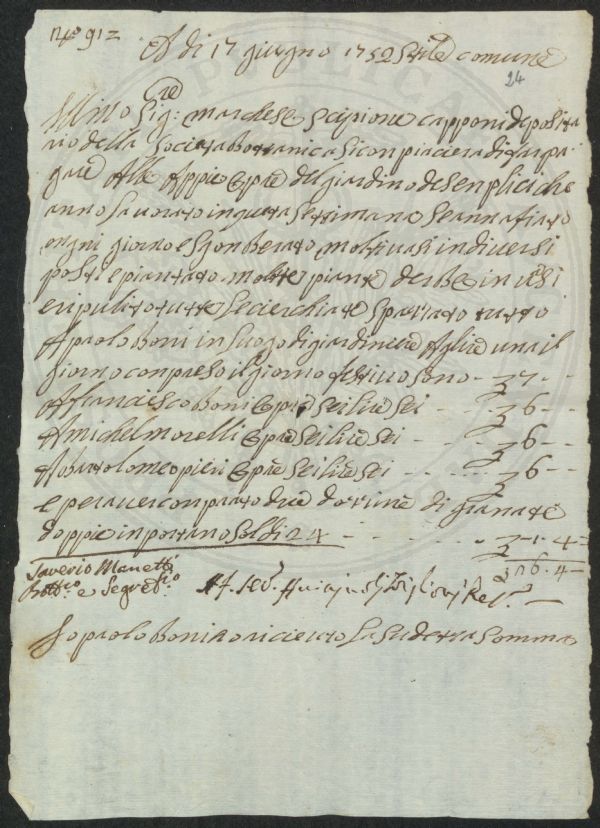 Nº 912
A di 17 giugno 1752 Stile comune
24
Ill.mo Sig.re marchese scipione capponi deposita
rio della Societa bottanica si conpiaciera di far pa
gare Alle Appie Opere del giardino de senplici che
anno lauorato in questa settimana e anno
ogni giorno e sgonberato molti uasi in diuersi
posti e piantato molte piante derbe in uasi
e ripulito tutte le e spazzato tutto
A paolo Boni in luogo di giardinere A lire una il
giorno conpreso il giorno festiuo sono - 7 - -
A francesco boni Opre sei lire sei - - - 6 - -
A michel morelli Opre sei lire sei - - - 6 - -
A bartolomeo pieri Opre sei lire sei - - - 6 - -
e per auer conprato due dozzine di granate
doppie inportano soldi 24 - - - 1 - 4 -
26 - 4 -
Saverio Manetti
Bott.co e Segret.rio
Io paolo boni o riceuto la sudetta somma